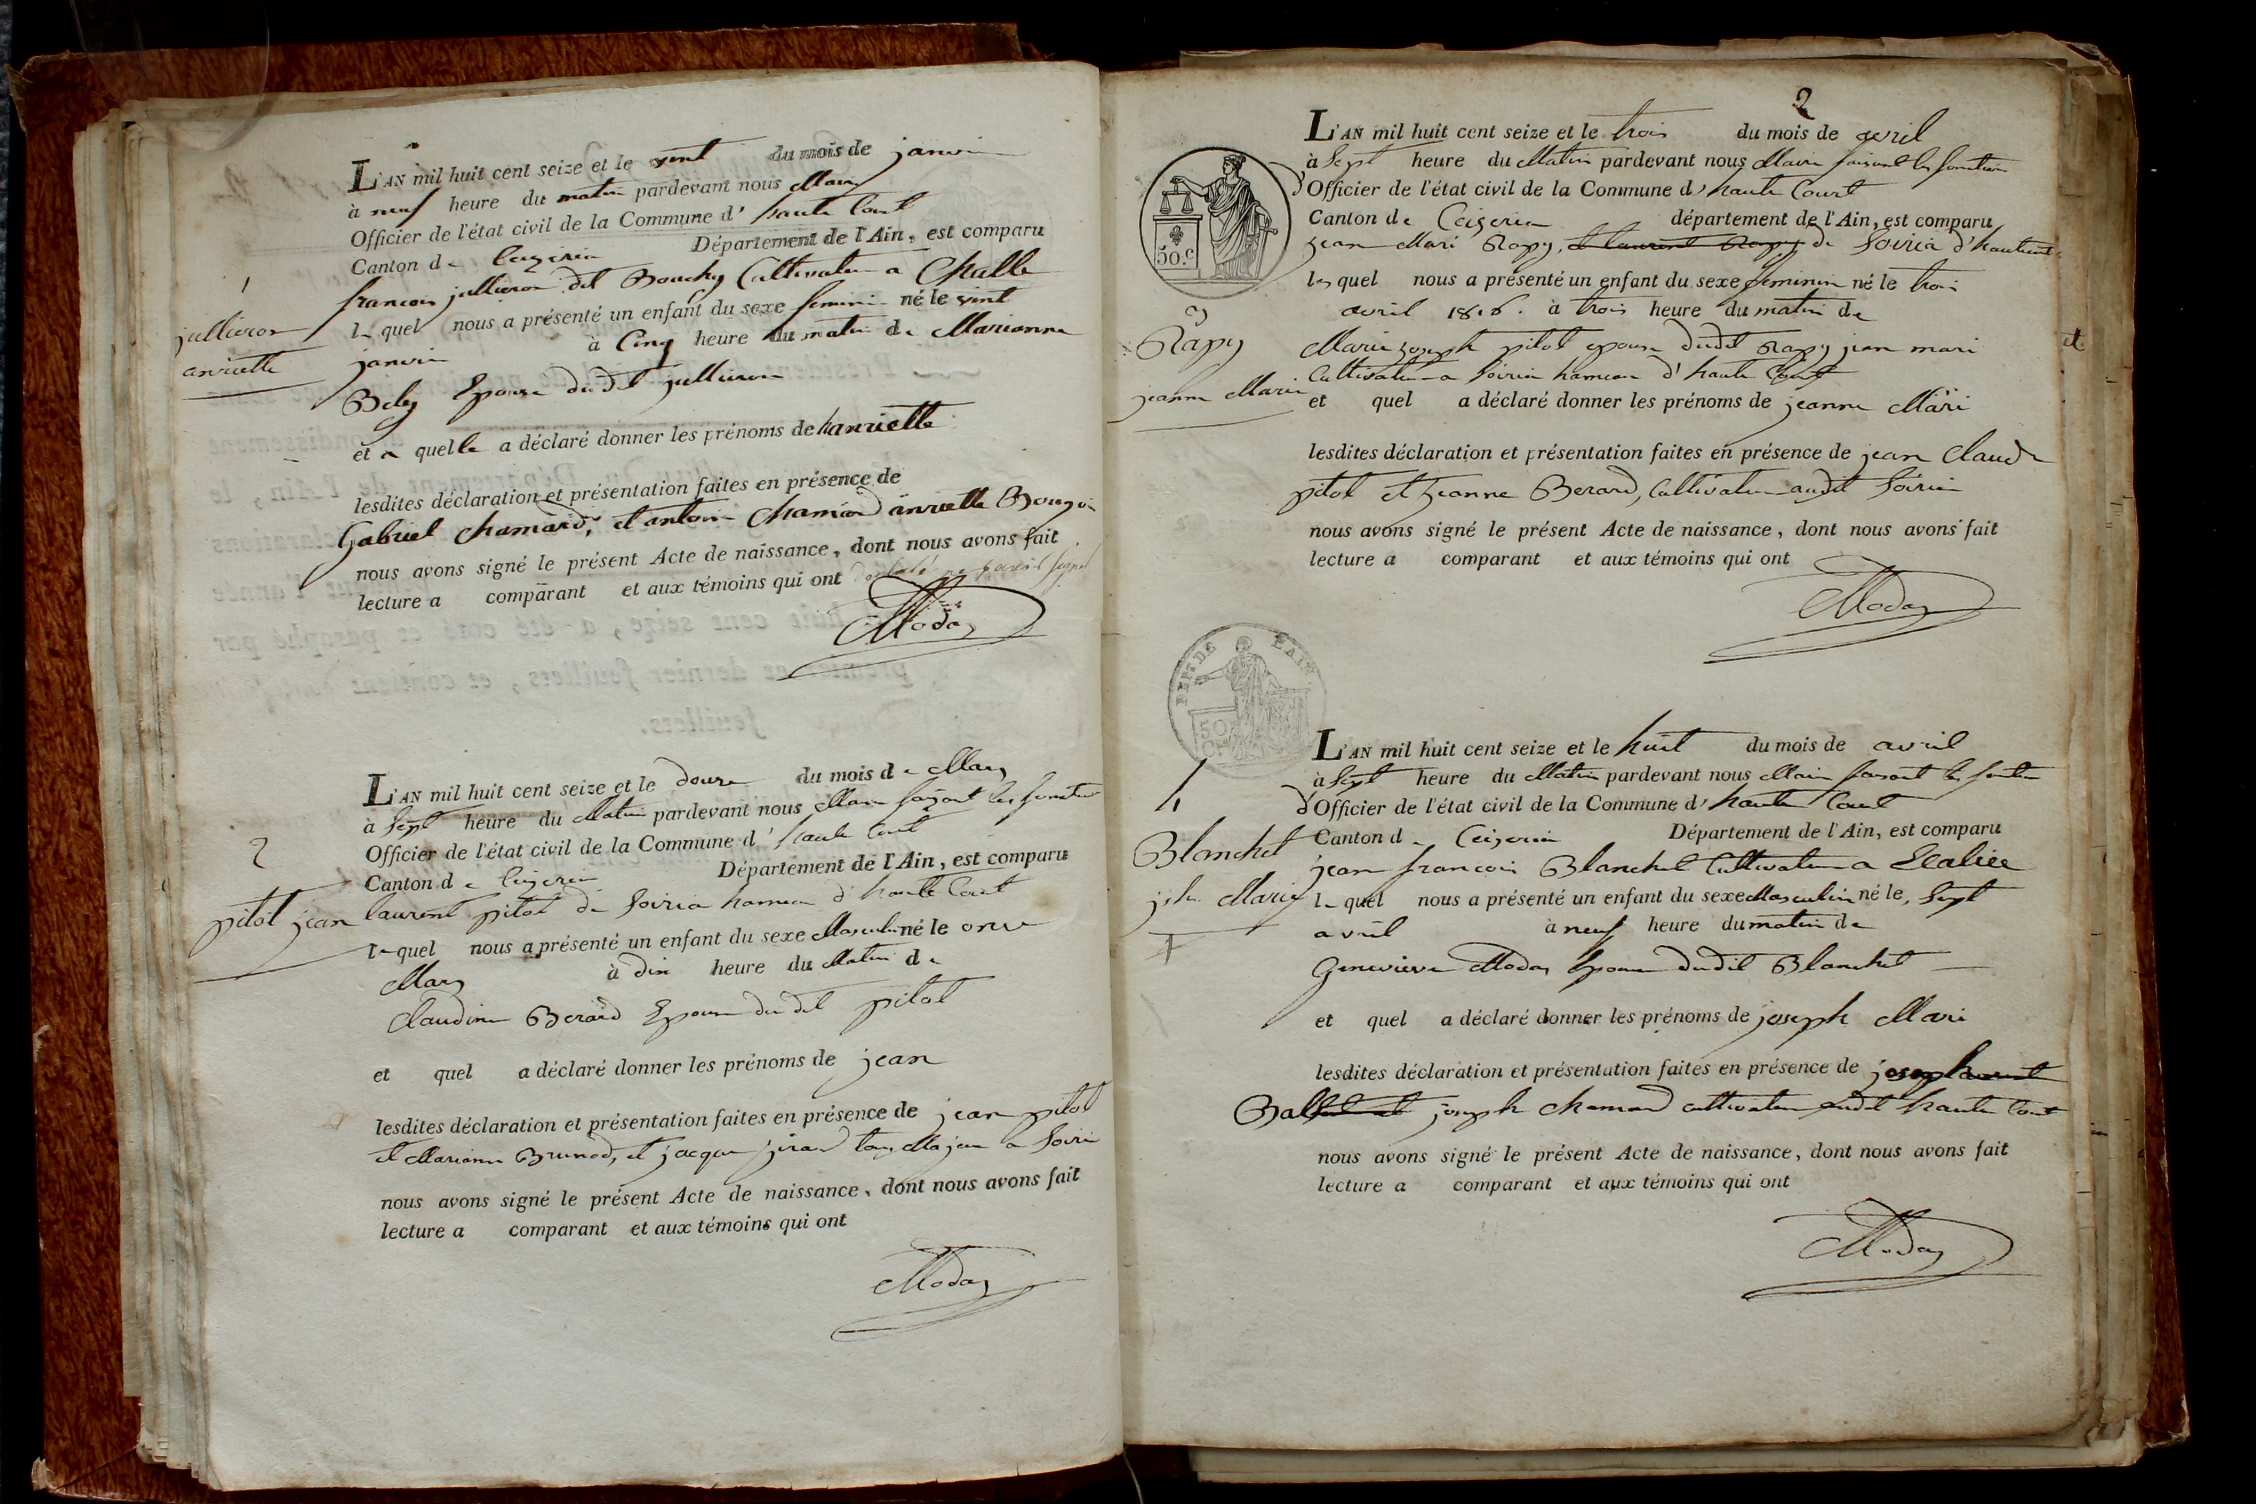 1
jullieron
anriette
L'AN mil huit cent seize et le vint du mois de janvie
à neuf heure du matin pardevant nous Maire
Officier de l'état civil de la Commune d' haute Court
Canton de Ceizeria Département de l'Ain, est comparu
francois jullieron dit Bouchy Cultivateur a Challe
le quel nous a présenté un enfant du sexe feminin né le vint
janvie à Cinq heure du matin de Marianne
Beley Epouse du dit jullieron
et a quelle a déclaré donner les prénoms de hanriette
lesdites déclaration et présentation faites en présence de
Gabriel Chamard, et antoine Chamard anriette
nous avons signé le présent Acte de naissance, dont nous avons fait
lecture a comparant et aux témoins qui ont
Moday
2
pitot jean
L'AN mil huit cent seize et le douze du mois de Mars
à Sept heure du Matin pardevant nous Maire faisant les fonction
Officier de l'état civil de la Commune d' haute Court
Canton de Ceizeria Département de l'Ain, est comparu
laurent pitot de Soiria hameau d' haute Court
le quel nous a présenté un enfant du sexe Masculin né le onze
Mars à dix heure du Matin de
Claudine Berard Epouse du dit pitot
et quel a déclaré donner les prénoms de jean
lesdites déclaration et présentation faites en présence de jean pitot
et Marianne Brunod, et jacque jirard tous Majeur a Soiria
nous avons signé le présent Acte de naissance, dont nous avons fait
lecture a comparant et aux témoins qui ont
Moday
2
50.c
3
Rapy
jeanne Marie
L'AN mil huit cent seize et le trois du mois de avril
à Sept heure du Matin pardevant nous Maire faisant les fonction
d'Officier de l'état civil de la Commune d' haute Court
Canton de Ceizeria département de l'Ain, est comparu
jean Marie Rapy, et laurent Rapy de Soiria d'hautecourt
les quel nous a présenté un enfant du sexe feminin né le trois
avril 1816. à trois heure du matin de
Marie joseph pitot epouse dudit Rapy jean marie
Cultivateur a Soiria hameau d' haute Court
et quel a déclaré donner les prénoms de jeanne Marie
lesdites déclaration et présentation faites en présence de jean Claude
pitot et jeanne Berard, Cultivateur audit Soiria
nous avons signé le présent Acte de naissance, dont nous avons fait
lecture a comparant et aux témoins qui ont
Moday
DEPT DE L'AIN
50
4
Blanchet
jph Marie
L'AN mil huit cent seize et le huit du mois de avril
à Sept heure du Matin pardevant nous Maire faisant les fonction
d'Officier de l'état civil de la Commune d' haute Court
Canton de Ceizeria Département de l'Ain, est comparu
jean francois Blanchet Cultivateur a
le quel nous a présenté un enfant du sexe Masculin né le, Sept
avril à neuf heure du matin de
Genevieve Moday Epouse dudit Blanchet
et quel a déclaré donner les prénoms de joseph Marie
lesdites déclaration et présentation faites en présence de
joseph chamard cultivateur audit haute Court
nous avons signé le présent Acte de naissance, dont nous avons fait
lecture a comparant et aux témoins qui ont
Moday